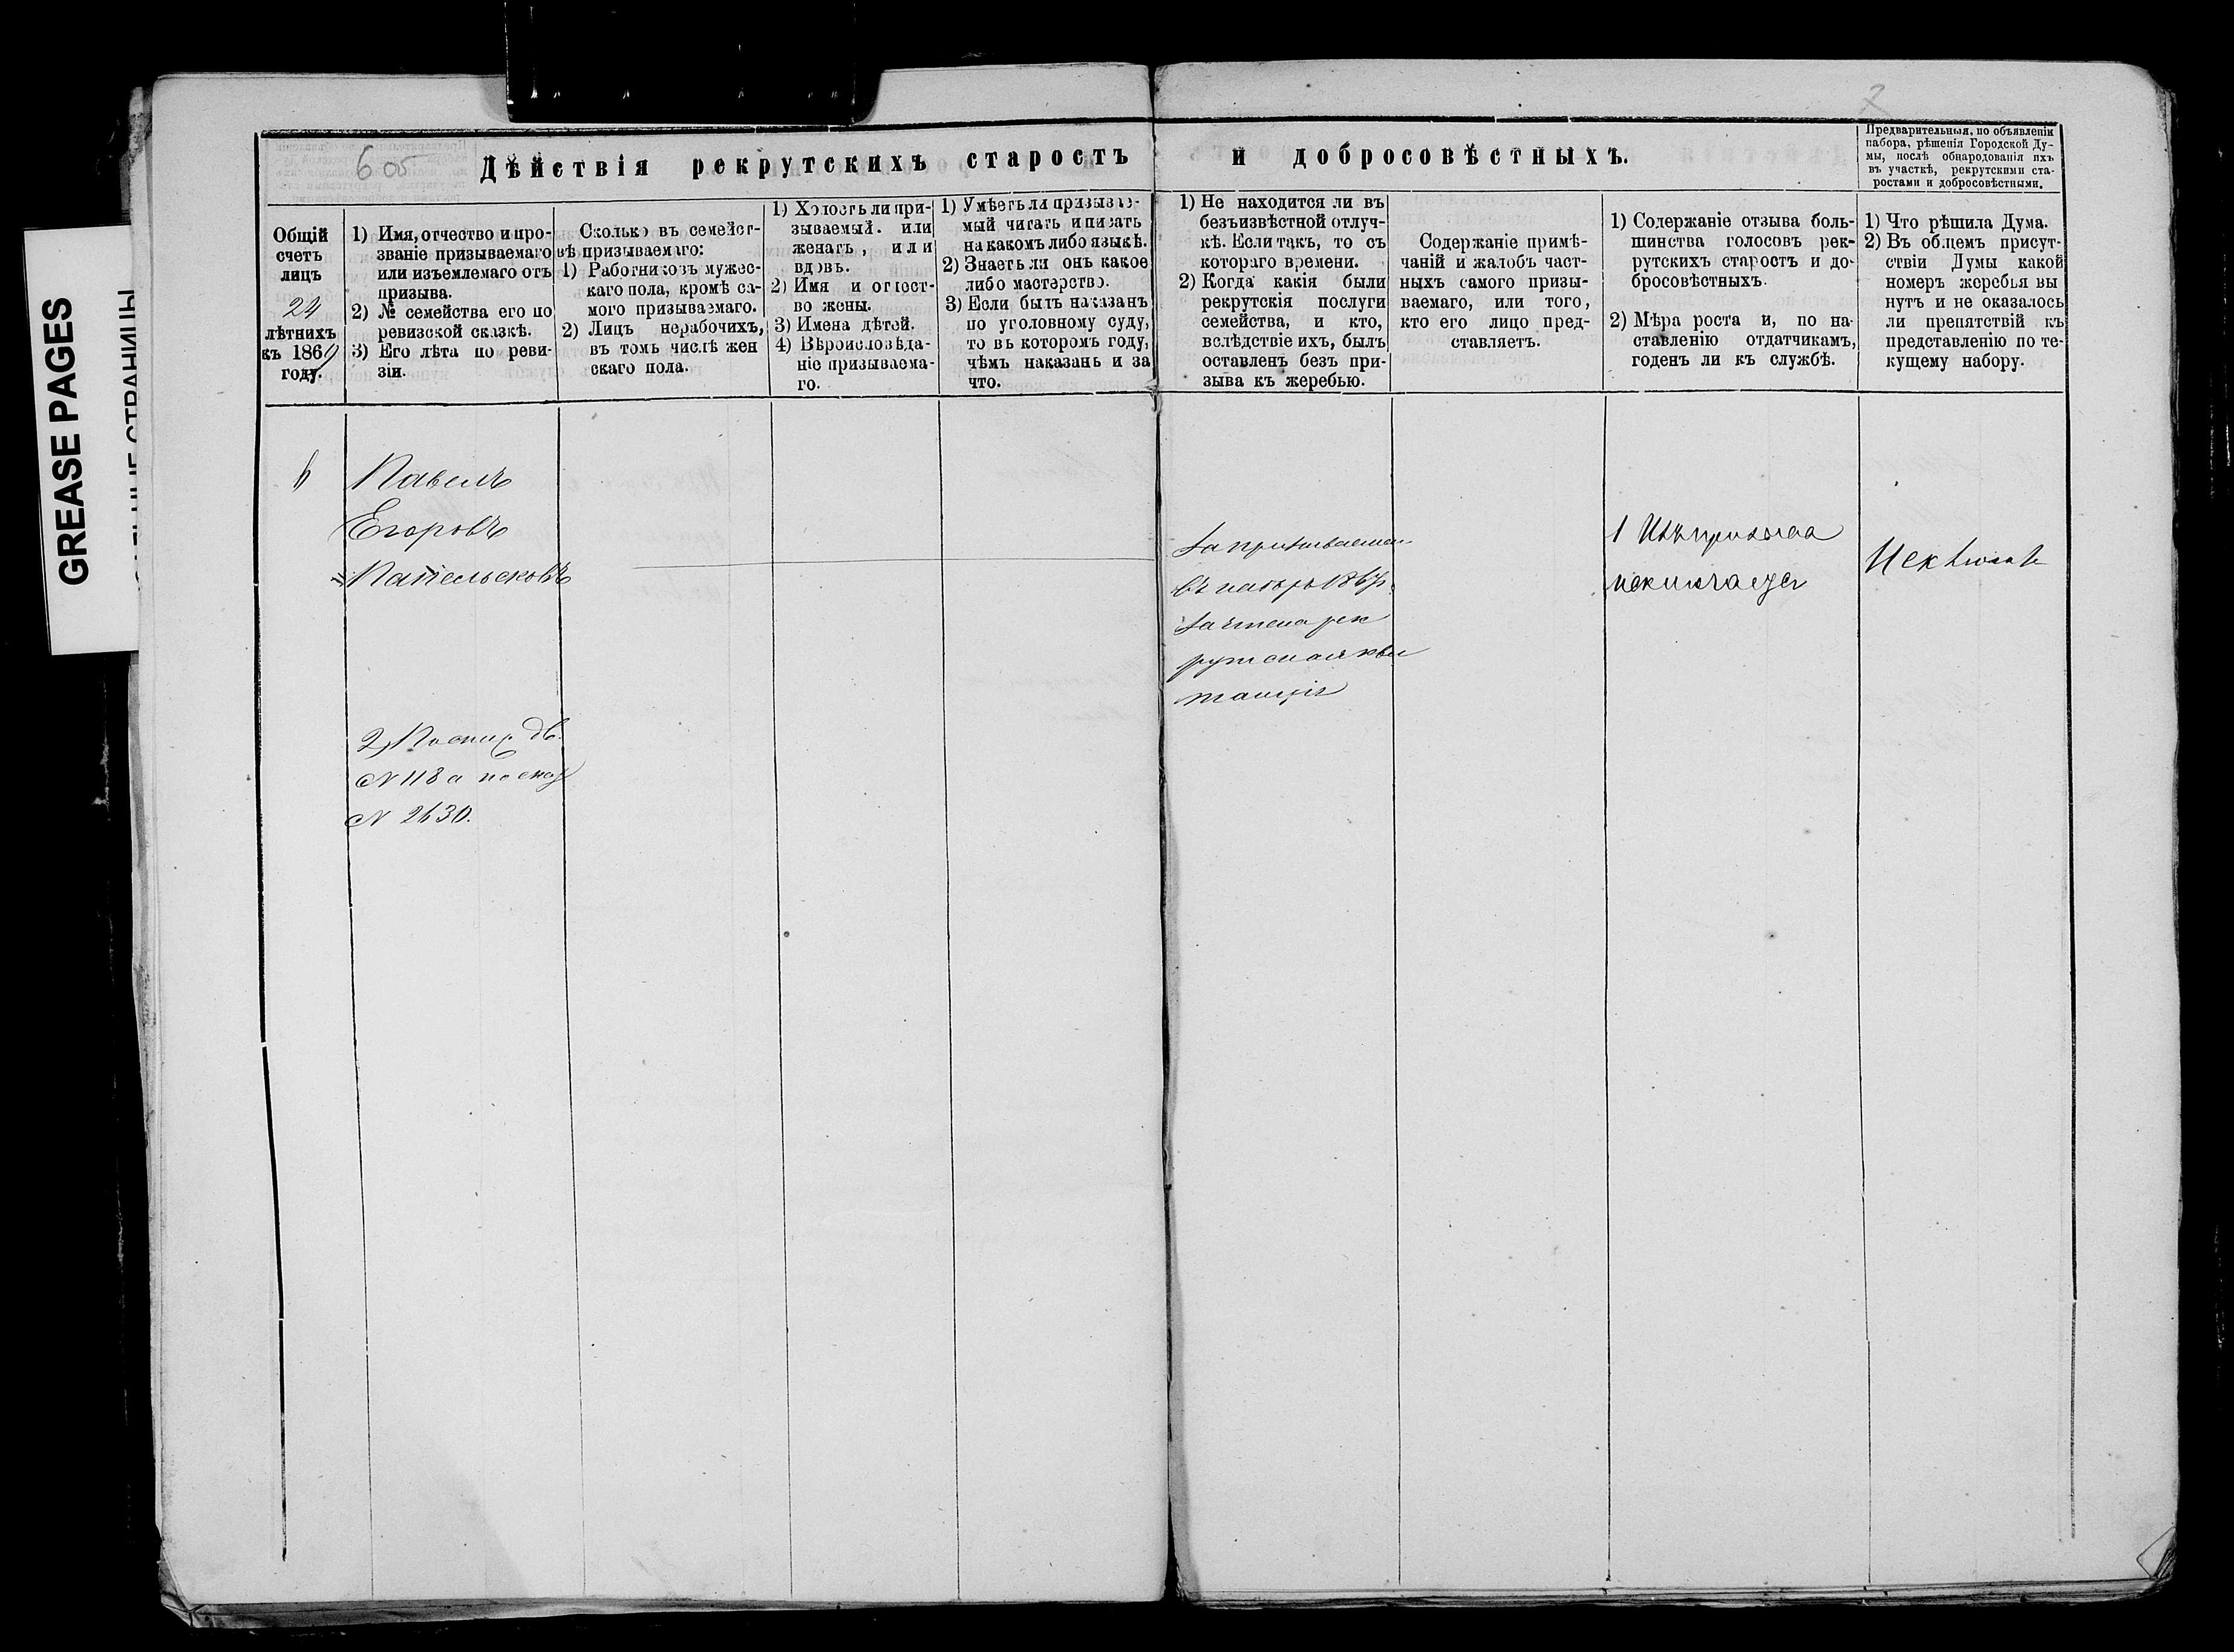 GREASE PAGES
САЛЬНЫЕ СТРАНИЦЫ
605
7
Дѣйствія рекрутскихъ старостъ и добросовѣстныхъ.
Предварительныя, по объявленіи
набора, рѣшенія Городской Ду-
мы, послѣ обнародованія ихъ
въ участкѣ, рекрутскими ста-
ростами и добросовѣстными.
Общій
счетъ
лицъ
24
лѣтнихъ
къ 1869
году.
1) Имя, отчество и про-
званіе призываемаго
или изъемлемаго отъ
призыва.
2) № семейства его по
ревизской сказкѣ.
3) Его лѣта по реви-
зіи.
Сколько въ семейст-
вѣ призываемаго:
1) Работниковъ мужес-
каго пола, кромѣ са-
мого призываемаго.
2) Лицъ нерабочихъ,
въ томъ числѣ жен
скаго пола.
1) Холостъ ли при-
зываемый. или
женатъ, или
вдовъ.
2) Имя и отчест-
во жены.
3) Имена дѣтей.
4) Вѣроисповѣда-
ніе призываема-
го.
1) Умѣетъ ли призывае-
мый читать и писать
на какомъ либо языкѣ.
2) Знаетъ ли онъ какое
либо мастерство.
3) Если былъ наказанъ
по уголовному суду,
то въ которомъ году,
чѣмъ наказанъ и за
что.
1) Не находится ли въ
безъизвѣстной отлуч-
кѣ. Если такъ, то съ
котораго времени.
2) Когда какія были
рекрутскія послуги
семейства, и кто,
вслѣдствіе ихъ, былъ
оставленъ безъ при-
зыва къ жеребью.
Содержаніе примѣ-
чаній и жалобъ част-
ныхъ самого призы-
ваемаго, или того,
кто его лицо пред-
ставляетъ.
1) Содержаніе отзыва боль-
шинства голосовъ рек-
рутскихъ старостъ и до-
бросовѣстныхъ.
2) Мѣра роста и, по на-
ставленію отдатчикамъ,
годенъ ли къ службѣ.
1) Что рѣшила Дума.
2) Въ общемъ присут-
ствіи Думы какой
номеръ жеребья вы
нутъ и не оказалось
ли препятствій къ
представленію по те-
кущему набору.
Павелъ
Егоровъ
Папельсковъ
2) По спис. дв.
N 118 а по сказ
N 2630.
За призываемаго
въ наборъ 1867г.
зачтена рек
рутская кви
танція
1 Изъ призыва
исключается
Исключить